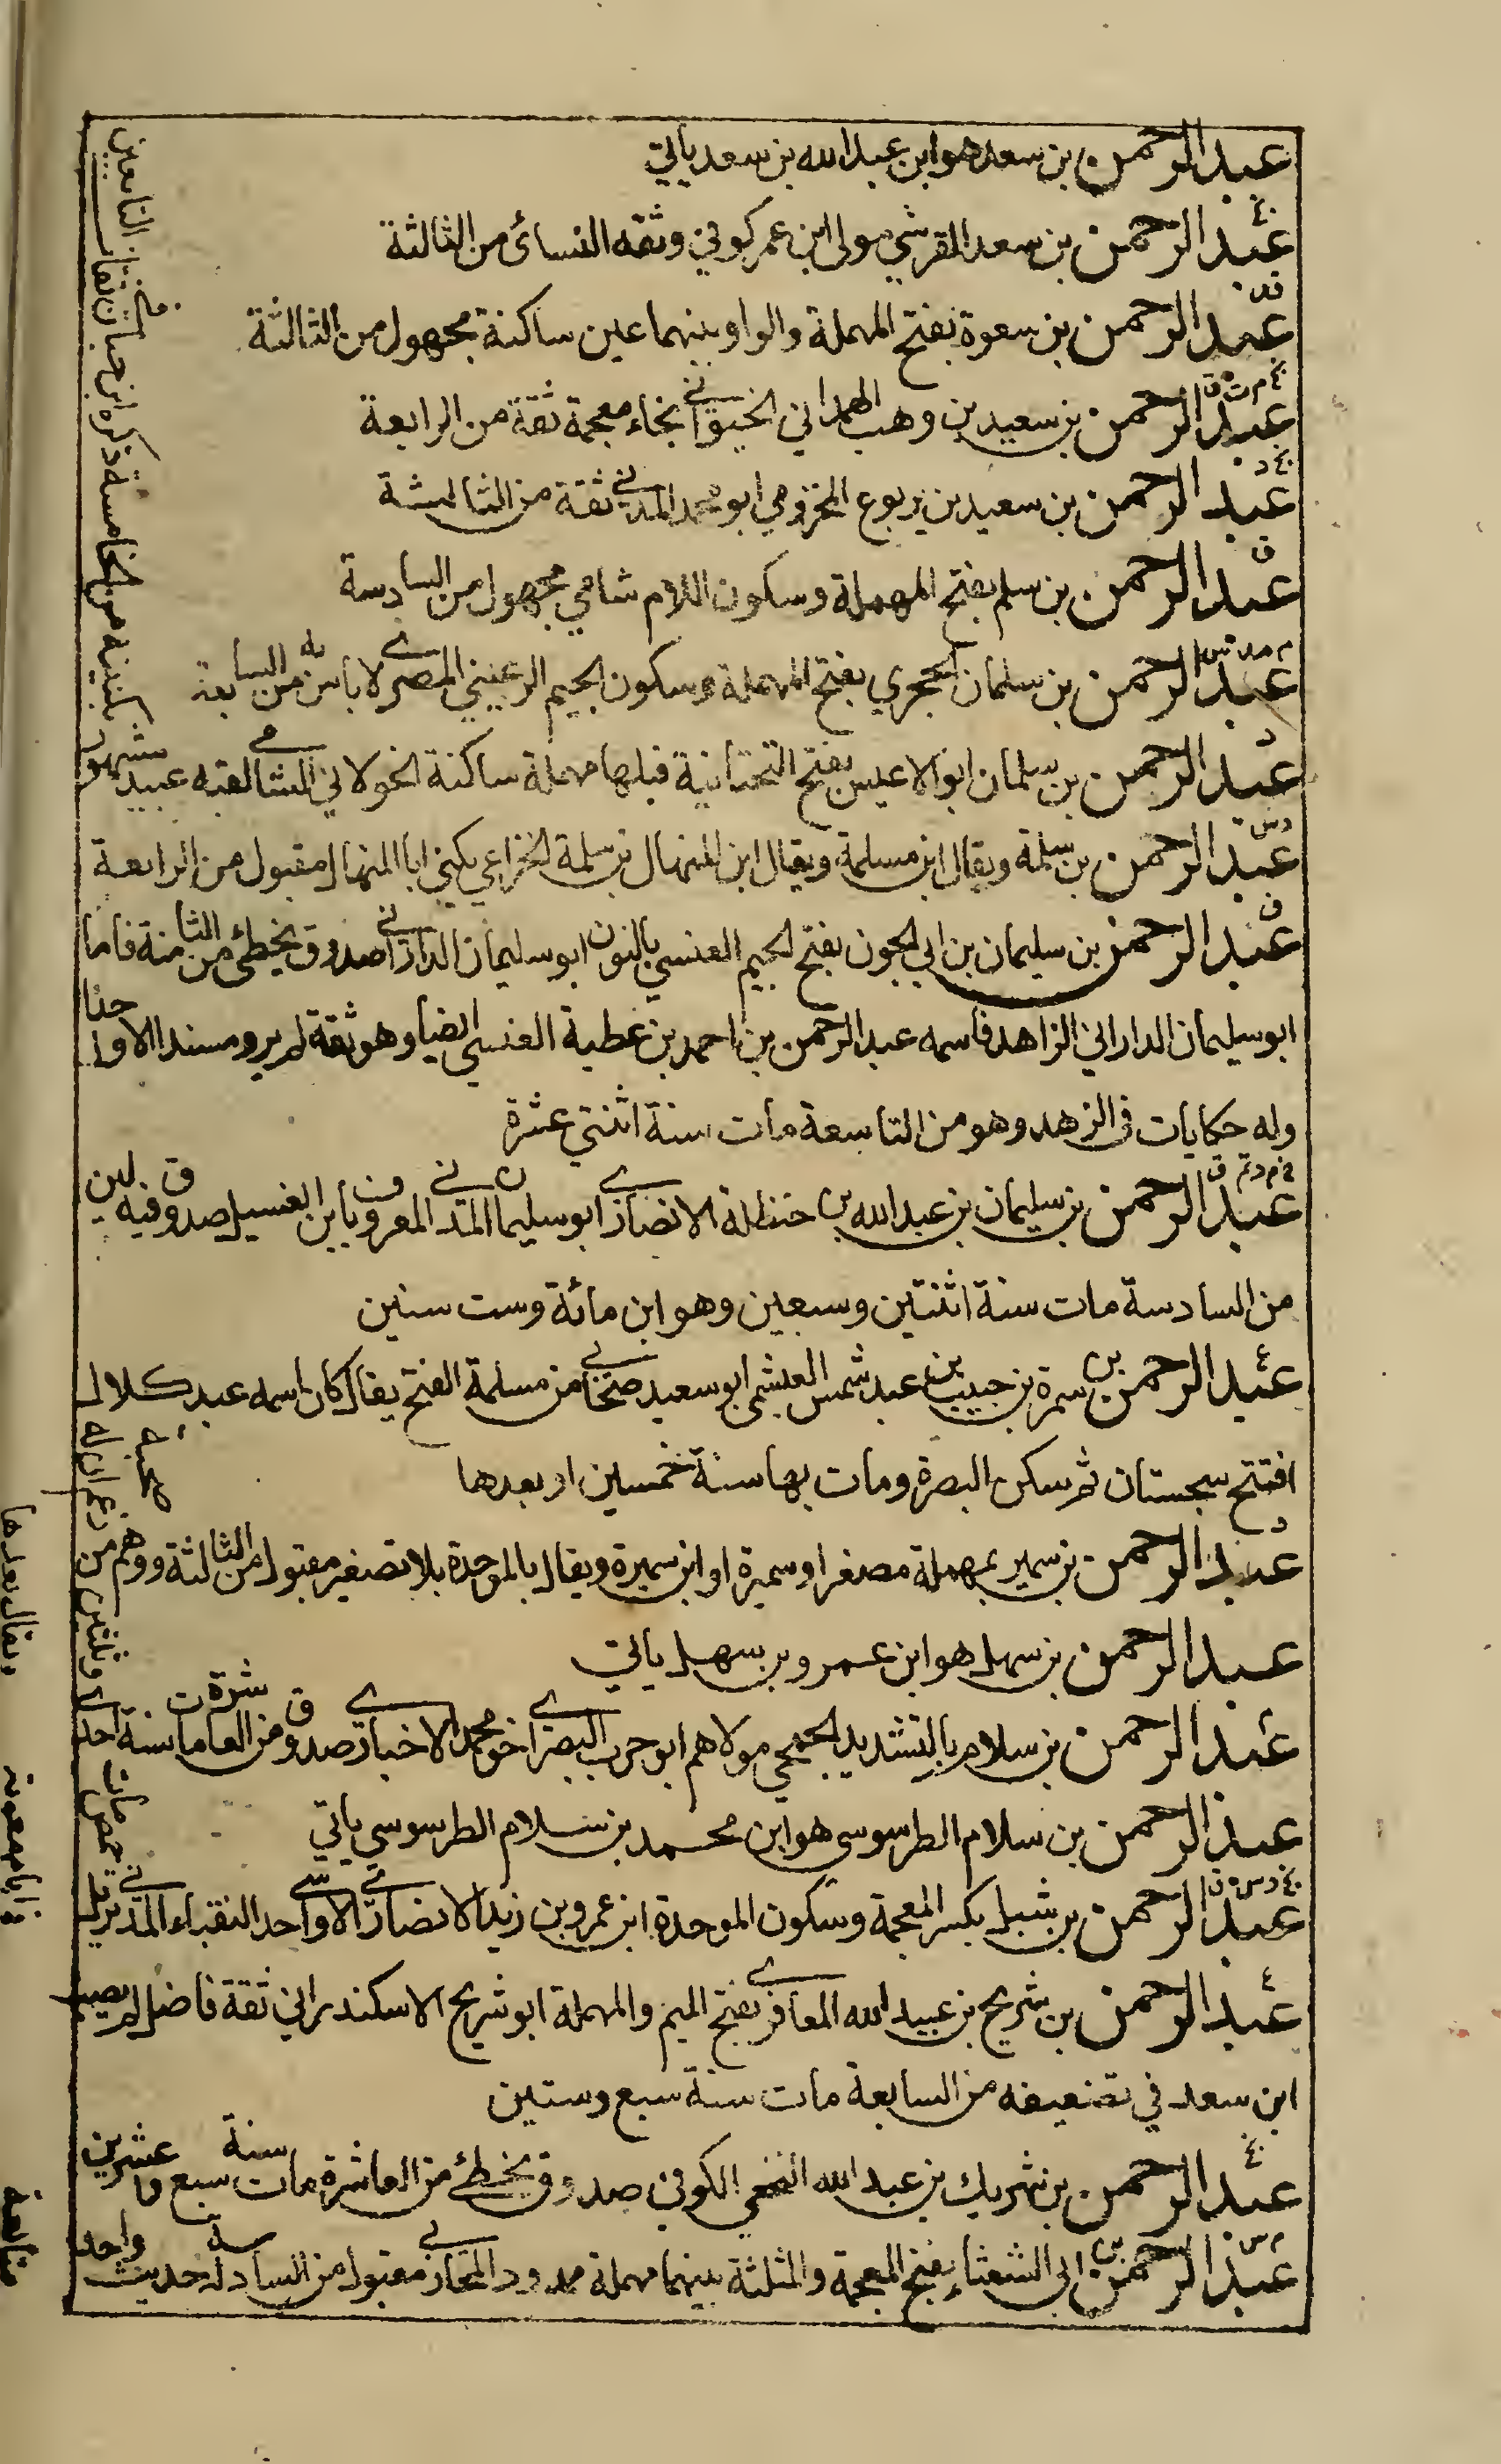 عبد الرحمن بن سعد هو ابن عبد الله بن سعد ياتي
عبد الرحمن بن سعد القرشي مولى ابن عمر كوفي وثقه النسائ من الثالثة
عبد الرحمن بن سعوة بفتح المهملة والواو بينهما عين ساكنة مجهول من الثالثة
عبد الرحمن بن سعيد بن وهب الهمداني الخيواني بخاء معجمة ثقة من الرابعة
عبد الرحمن بن سعيد بن يربوع المخزومي ابو محمد المدني ثقة من الثالثة
عبد الرحمن بن سلم بفتح المهملة وسكون اللام شامي مجهول من السادسة
عبد الرحمن بن سلمان الحجري بفتح المهملة وسكون الجيم الرعيني المصري لا باس به من السابعة
عبد الرحمن بن سلمان ابو الاعيس بفتح التحتانية قبلها مهملة ساكنة الخولاني الشامي لقبه عبيد مشهور
بكنيته من الخامسة ذكره ابن حبان في ثقات التابعين
عبد الرحمن بن سلمة ويقال ابن مسلمة ويقال ابن المنهال بن سلمة الخزاعي يكنى ابا المنهال مقبول من الرابعة
عبد الرحمن بن سليمان بن ابي الجون بفتح الجيم العنسي بالنون ابو سليمان الداراني صدوق يخطئ من الثامنة فاما
ابو سليمان الداراني الزاهد فاسمه عبد الرحمن بن احمد بن عطية العنسي ايضا وهو ثقة لم يرو مسندا الا واحدا
وله حكايات في الزهد وهو من التاسعة مات سنة اثنتي عشرة
عبد الرحمن بن سليمان بن عبد الله بن حنظلة الانصاري ابو سليمان المدني المعروف بابن الغسيل صدوق فيه لين
من السادسة مات سنة اثنتين وسبعين وهو ابن مائة وست سنين
عبد الرحمن بن سمرة بن حبيب بن عبد شمس العبشمي ابو سعيد صحابي من مسلمة الفتح يقال كان اسمه عبد كلال
افتتح سجستان ثم سكن البصرة ومات بها سنة خمسين او بعدها
عبد الرحمن بن سمير بمهملة مصغر او سميرة او ابن سميرة ويقال بالموحدة بلا تصغير مقبول من الثالثة ووهم من
زعم ان له صحبة
عبد الرحمن بن سهل هو ابن عمرو بن سهل ياتي
عبد الرحمن بن سلام بالتشديد الجمحي مولاهم ابو حرب البصري اخو محمد الاخباري صدوق من العاشرة مات سنة احدى
وثلثين ويقال بعدها
عبد الرحمن بن سلام الطرسوسي هو ابن محمد بن سلام الطرسوسي ياتي
عبد الرحمن بن شبل بكسر المعجمة وسكون الموحدة ابن عمرو بن زيد الانصاري الاوسي احد النقباء المدني نزيل
حمص مات
عبد الرحمن بن شريح بن عبيد الله المعافري بفتح الميم والمهملة ابو شريح الاسكندراني ثقة فاضل لم يصب
ابن سعد في تضعيفه من السابعة مات سنة سبع وستين
عبد الرحمن بن شريك بن عبد الله النخعي الكوفي صدوق يخطئ من العاشرة مات سنة سبع وعشرين
عبد الرحمن بن ابي الشعثاء بفتح المعجمة والمثلثة بينهما مهملة ممدود المحاربي مقبول من السادسة له حديث واحد